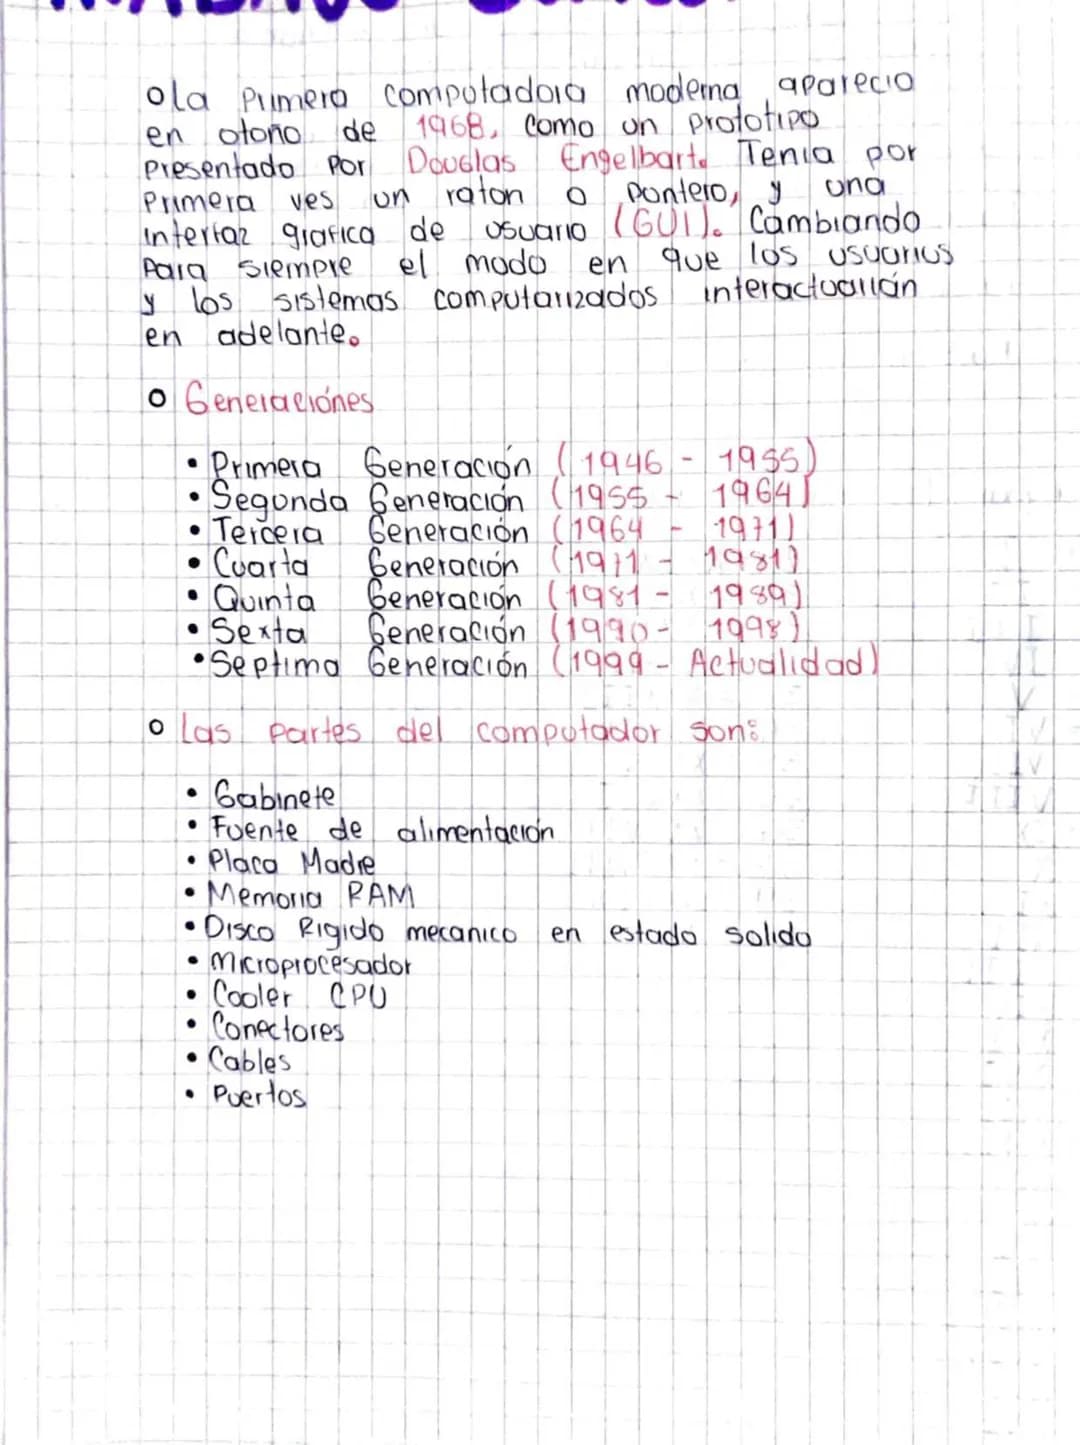 o La Primera computadora moderna aparecio
en otoño de 1968, como un prototipo
Presentado Por Douglas Engelbart. Tenia por
Primera ves un raton o pontero, y una
interfaz grafica de usuario (GUI). Cambiando
Para siempre el modo en que los usuarios
y los sistemas computarizados interactuarián
en adelante.
o Generaciónes
• Primera Generación (1946 - 1955)
• Segunda Generación (1955 - 1964)
• Tercera Generación (1964 - 1971)
• Cuarta Generación (1971 - 1981)
• Quinta Generación (1981 - 1989)
• Sexta Generación (1990 - 1998)
• Septima Generación (1999 - Actualidad)
o Las partes del computador son:
• Gabinete
• Fuente de alimentación
• Placa Madre
• Memoria RAM
• Disco Rigido mecanico en estado solido
• Microprocesador
• Cooler CPU
• Conectores
• Cables
• Puertos